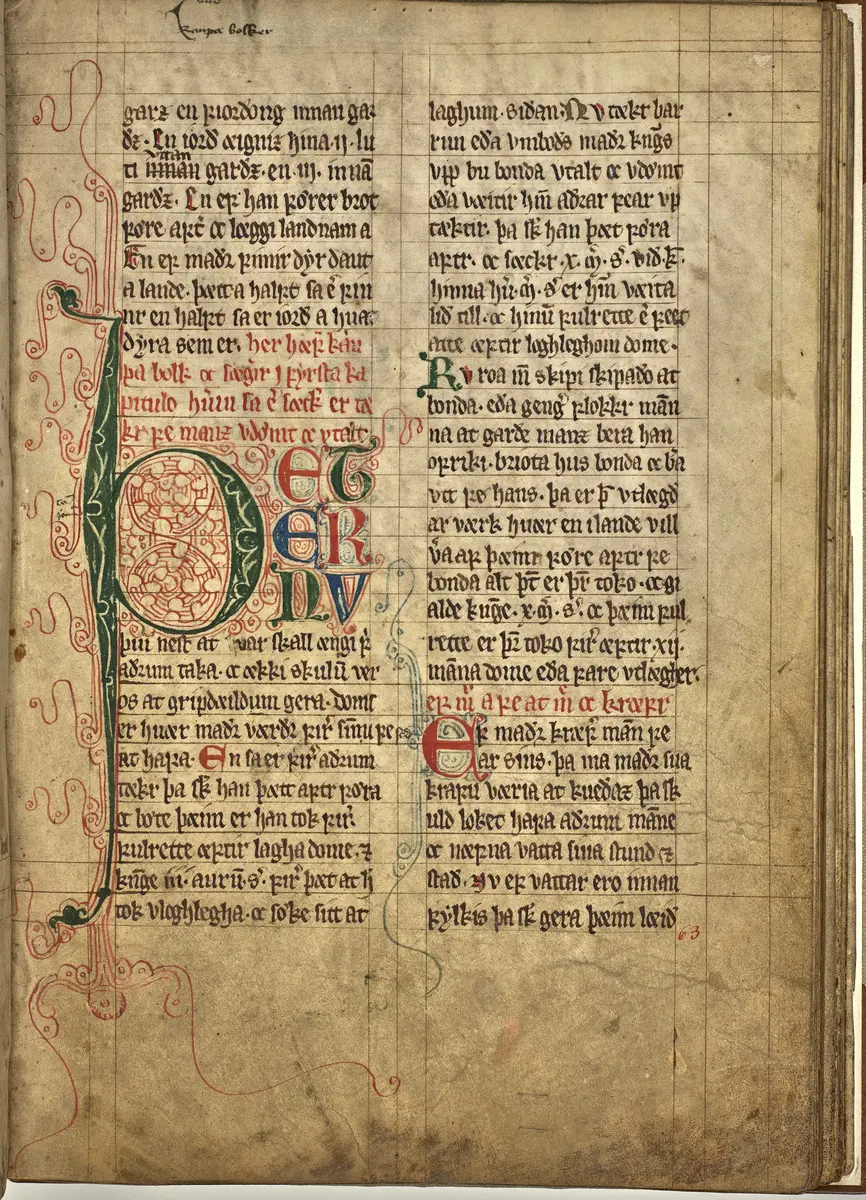 kaupa bolker
garz en fiordong innan gar
dz. En iord æigniz hina .ij. lu
ti innan gardz. en .iij. innā
vttan
gardz. En ef han fører brot
føre aftr oc læggi landnam a
En ef madr finnir dyr daut
a lande. þætta halft sa er fin
nr en halft sa er iord a huat
dyra sem er. her hæfr kau
pa bolk oc sægir j fyrsta ka
pitulo
kr fe manz vdømt oc vtalt
ÞET
ER
NV
þui nest at var skall ængi f
adrum taka. oc ækki skulū ver
os at gripdæildum gera. domr
er huær madr værdr firr sinu fe
at hafa. En sa er firr adrum
tækr þa sk han þætt aftr føra
oc bøte þæim er han tok firr
fulrette æftir lagha dome. ⁊
kūge iij. aurū s. firr þæt at h
tok vloghlegha. oc søke sitt at
laghum. sidan. Nv tækr bar
run eda vmbods madr kūgs
vpp bu bonda vtalt oc vdømt
eda væitir him adrar fear vp
tæktir. þa sk han þæt føra
aftr. oc sæckr .x. m. s. vid k.
hinna hū m. s. er him væita
lid till. oc hinū fulrette er feet
atte æftir loghleghom dome.
Nv roa m skipi skipado at
bonda. eda gengr flokkr mān
na at garde manz bera han
ofriki. briota hus bonda oc ba
vt fe hans. þa er þ vtlægd
ar værk huær en i lande vill
va af þæim føre aftr fe
bonda alt þt er þr toko. oc gi
alde kūge .x. m. s. oc þæim ful
rette er þr toko firr æftir .xij.
māna dome eda fare vtlægher.
ef m a fe at m oc kræfr
Ef madr kræfr man fe
ar sins. þa ma madr sua
krafu væria at kuedaz þa sk
uld loket hafa adrum māne
oc næfna vatta sina stund ⁊
stad. Nv ef vattar ero innan
fylkis þa sk gera þæim læid
63